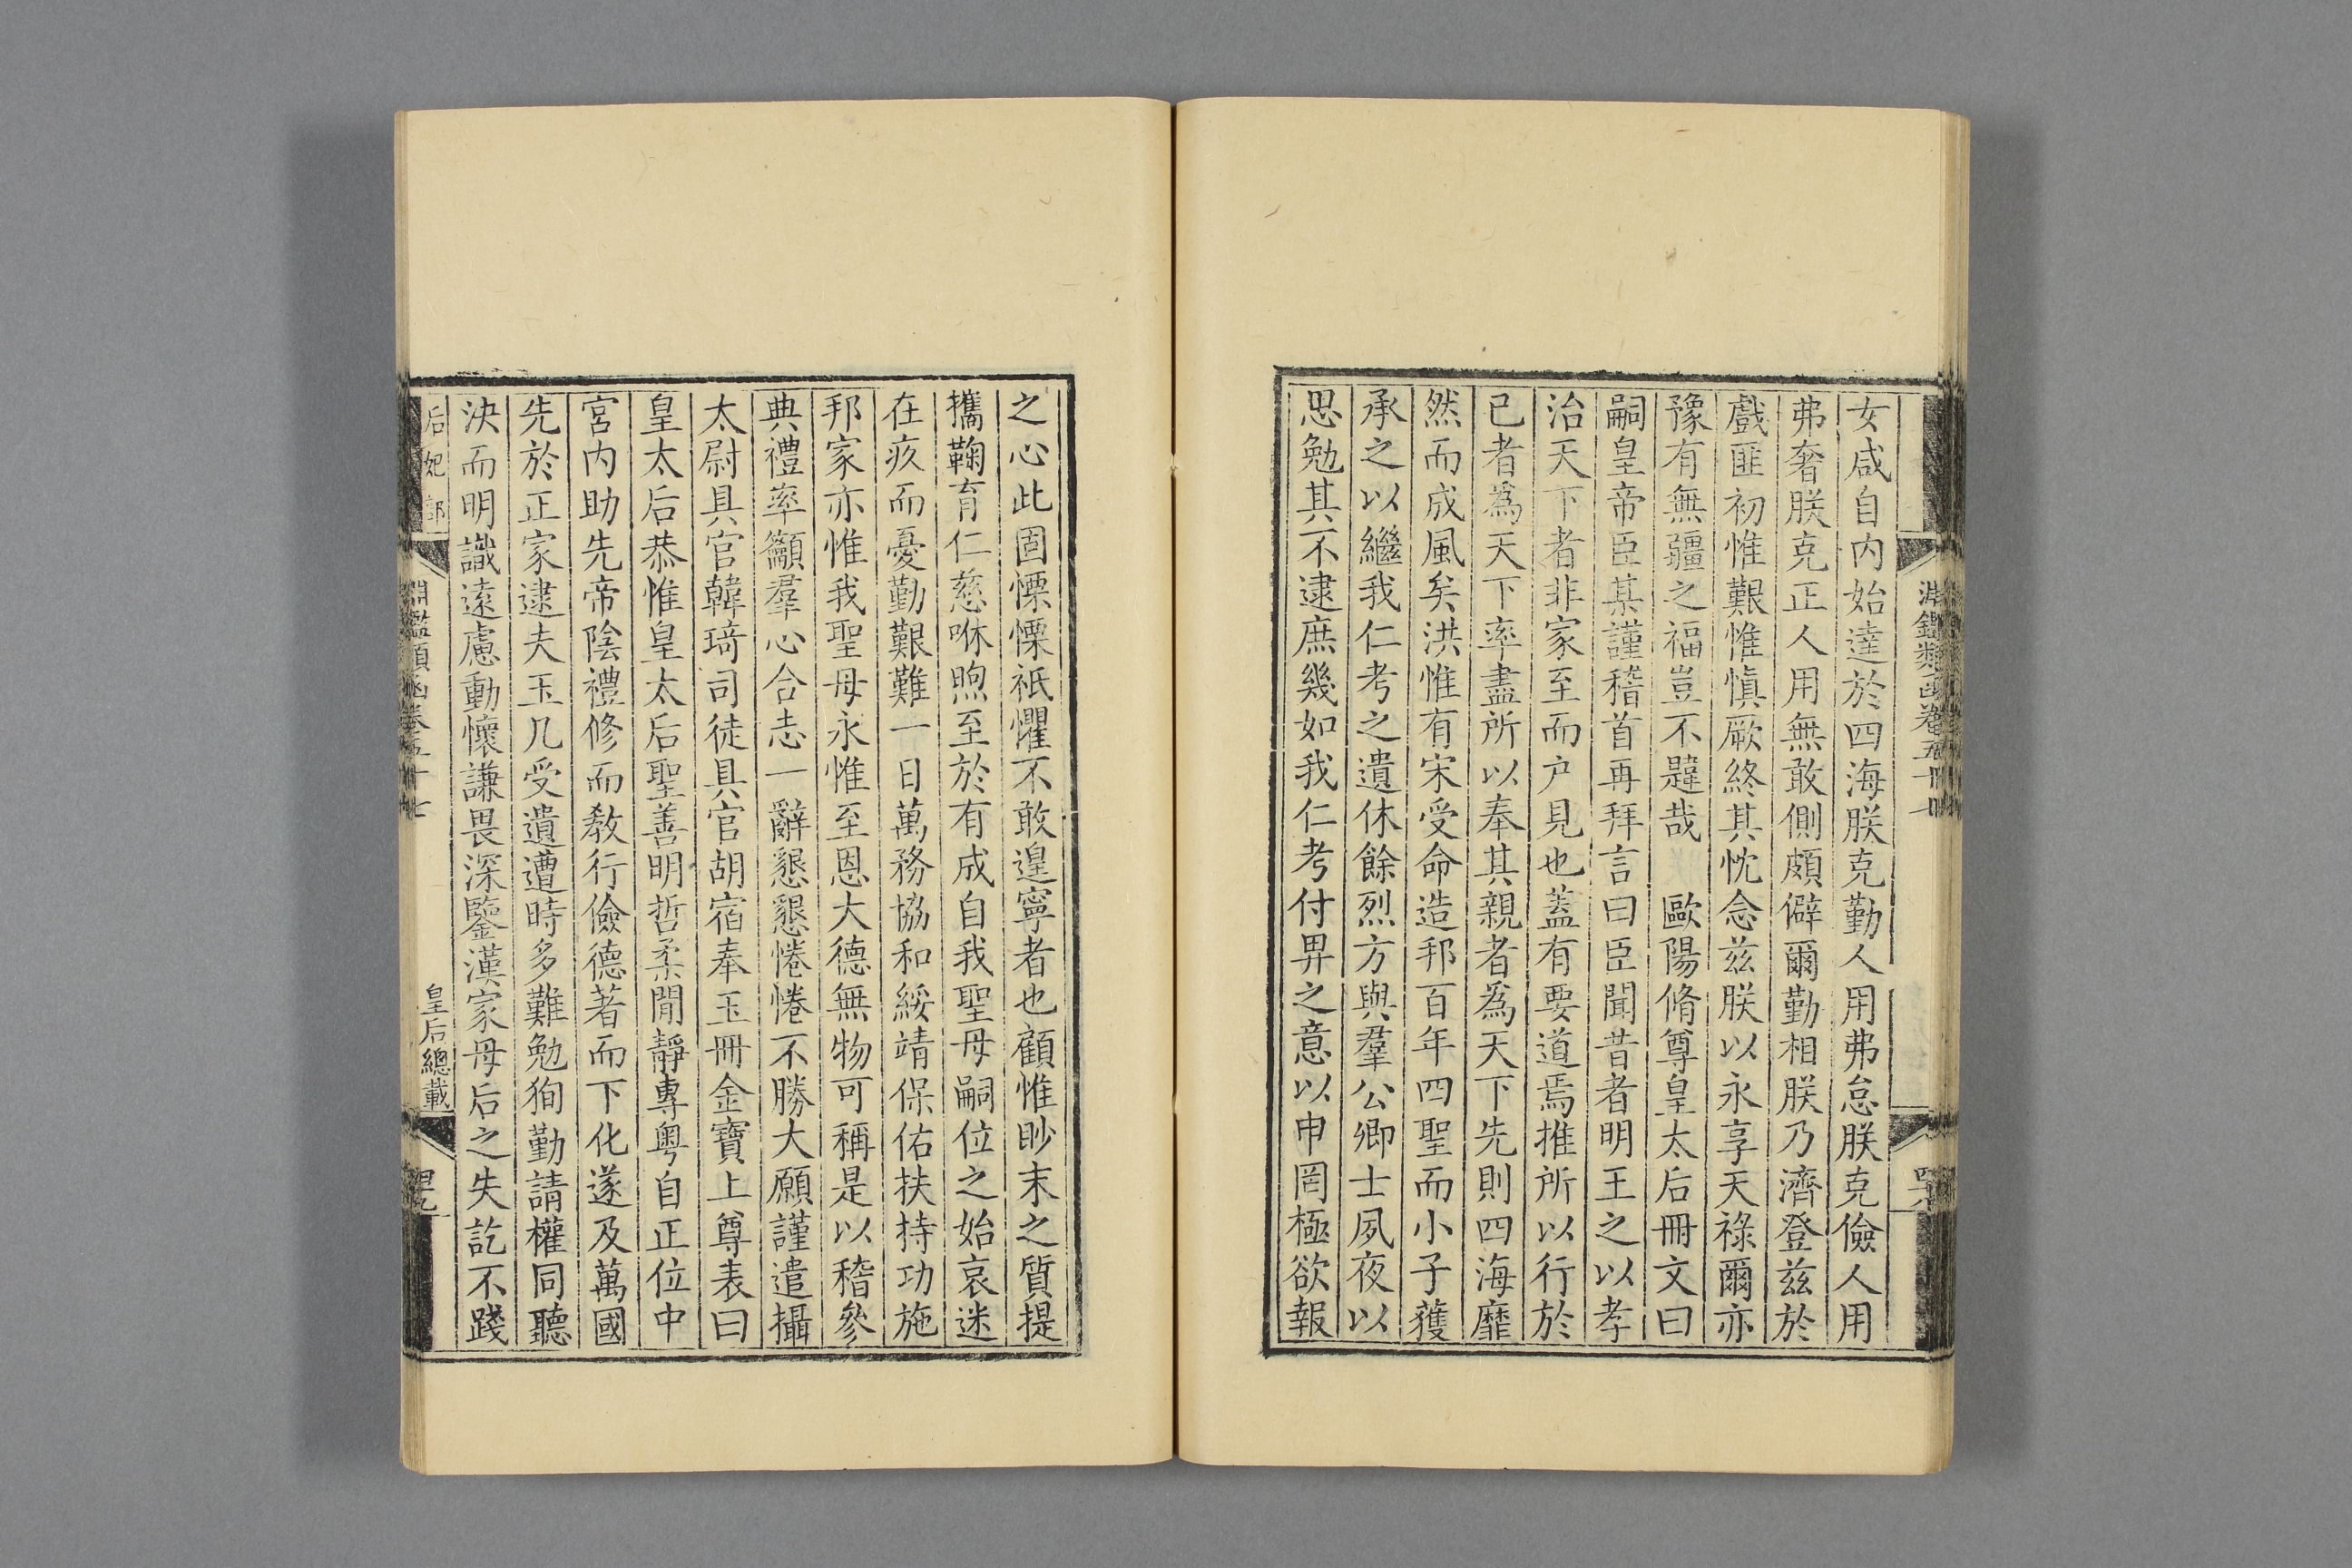 女咸自内始達於四海朕克勤人用弗怠朕克儉人用
弗奢朕克正人用無敢側頗僻爾勤相朕乃濟登兹於
戲匪初惟艱惟慎厥終其忱念兹朕以永享天祿爾亦
豫有無疆之福豈不韙哉 歐陽脩尊皇太后冊文曰
嗣皇帝臣某謹稽首再拜言曰臣聞昔者明王之以孝
治天下者非家至而户見也蓋有要道焉推所以行於
已者爲天下率盡所以奉其親者爲天下先則四海靡
然而成風矣洪惟有宋受命造邦百年四聖而小子蒦
承之以繼我仁考之遺休餘烈方與羣公卿士夙夜以
思勉其不逮庶幾如我仁考付畀之意以申罔極欲報
之心此固慄慄祇懼不敢遑寧者也顧惟眇末之質提
攜鞠育仁慈咻煦至於有成自我聖母嗣位之始哀迷
在疚而憂勤艱難一日萬務協和綏靖保佑扶持功施
邦家亦惟我聖母永惟至恩大德無物可稱是以稽參
典禮率籲羣心合志一辭懇懇惓惓不勝大願謹遣攝
太尉具官韓琦司徒具官胡宿奉玉冊金寶上尊表曰
皇太后恭惟皇太后聖善明哲柔閒靜專粤自正位中
宮内助先帝陰禮修而教行儉德著而下化遂及萬國
先於正家逮夫玉几受遺遭時多難勉狥勤請權同聽
決而明識遠慮動懷謙畏深鑒漢家母后之失訖不踐
后妃部
淵鑑類函卷五十七
皇后總載